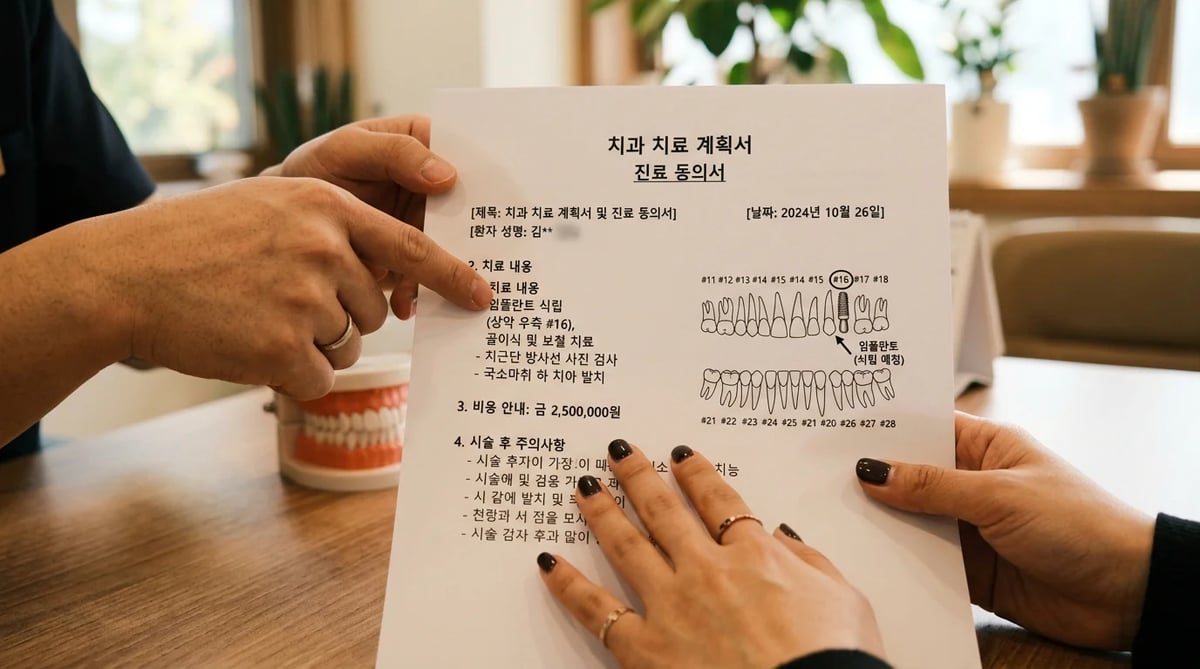 치과 치료 계획서
진료 동의서
[제목: 치과 치료 계획서 및 진료 동의서]
[날짜: 2024년 10월 26일]
[환자 성명: 김**
2. 치료 내용
치료 내용
임뜰란트 식립
(상악 우측 #16),
골이식 및 보철 치료
- 치근단 방사선 사진 검사
- 국소마취 하 치아 발치
#11 #12 #13 #14 #15 #14 #15 #16 #17 #18
임폴란토
(식림 예칭)
#21 #22 #23 #24 #25 #21 #20 #26 #27 #28
3. 비용 안내: 금 2,500,000원
4. 시술 후 주의사항
- 시술 후자이 가장.이
- 시술애 및 검옹
- 시 감에 발치 및
- 천랑과 서 점을 모시
- 시술 감자 후과 많이